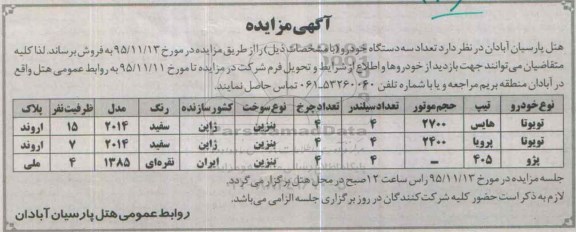 آگهی مزایده
هتل پارسیان آبادان در نظر دارد تعداد سه دستگاه خودرو (با مشخصات ذیل) را از طریق مزایده در مورخ ۹۵/۱۱/۱۳ به فروش برساند. لذا کلیه
متقاضیان می‌توانند جهت بازدید از خودروها و اطلاع از شرایط و تحویل فرم شرکت در مزایده تا مورخ ۹۵/۱۱/۱۱ به روابط عمومی هتل واقع
در آبادان منطقه بریم مراجعه و یا با شماره تلفن ۵۳۲۶۰۰۶۰-۰۶۱ تماس حاصل نمایند.
نوع خودرو تیپ حجم موتور تعداد سیلندر تعداد چرخ نوع سوخت کشور سازنده رنگ مدل ظرفیت نفر پلاک
تویوتا هایس ۲۷۰۰ ۴ ۴ بنزین ژاپن سفید ۲۰۱۴ ۱۵ اروند
تویوتا پرویا ۲۴۰۰ ۴ ۴ بنزین ژاپن سفید ۲۰۱۴ ۷ اروند
پژو ۴۰۵ – ۴ ۴ بنزین ایران نقره‌ای ۱۳۸۵ ۴ ملی
جلسه مزایده در مورخ ۹۵/۱۱/۱۳ راس ساعت ۱۲ صبح در محل هتل برگزار می‌گردد.
لازم به ذکر است حضور کلیه شرکت کنندگان در روز برگزاری جلسه الزامی می‌باشد.
روابط عمومی هتل پارسیان آبادان